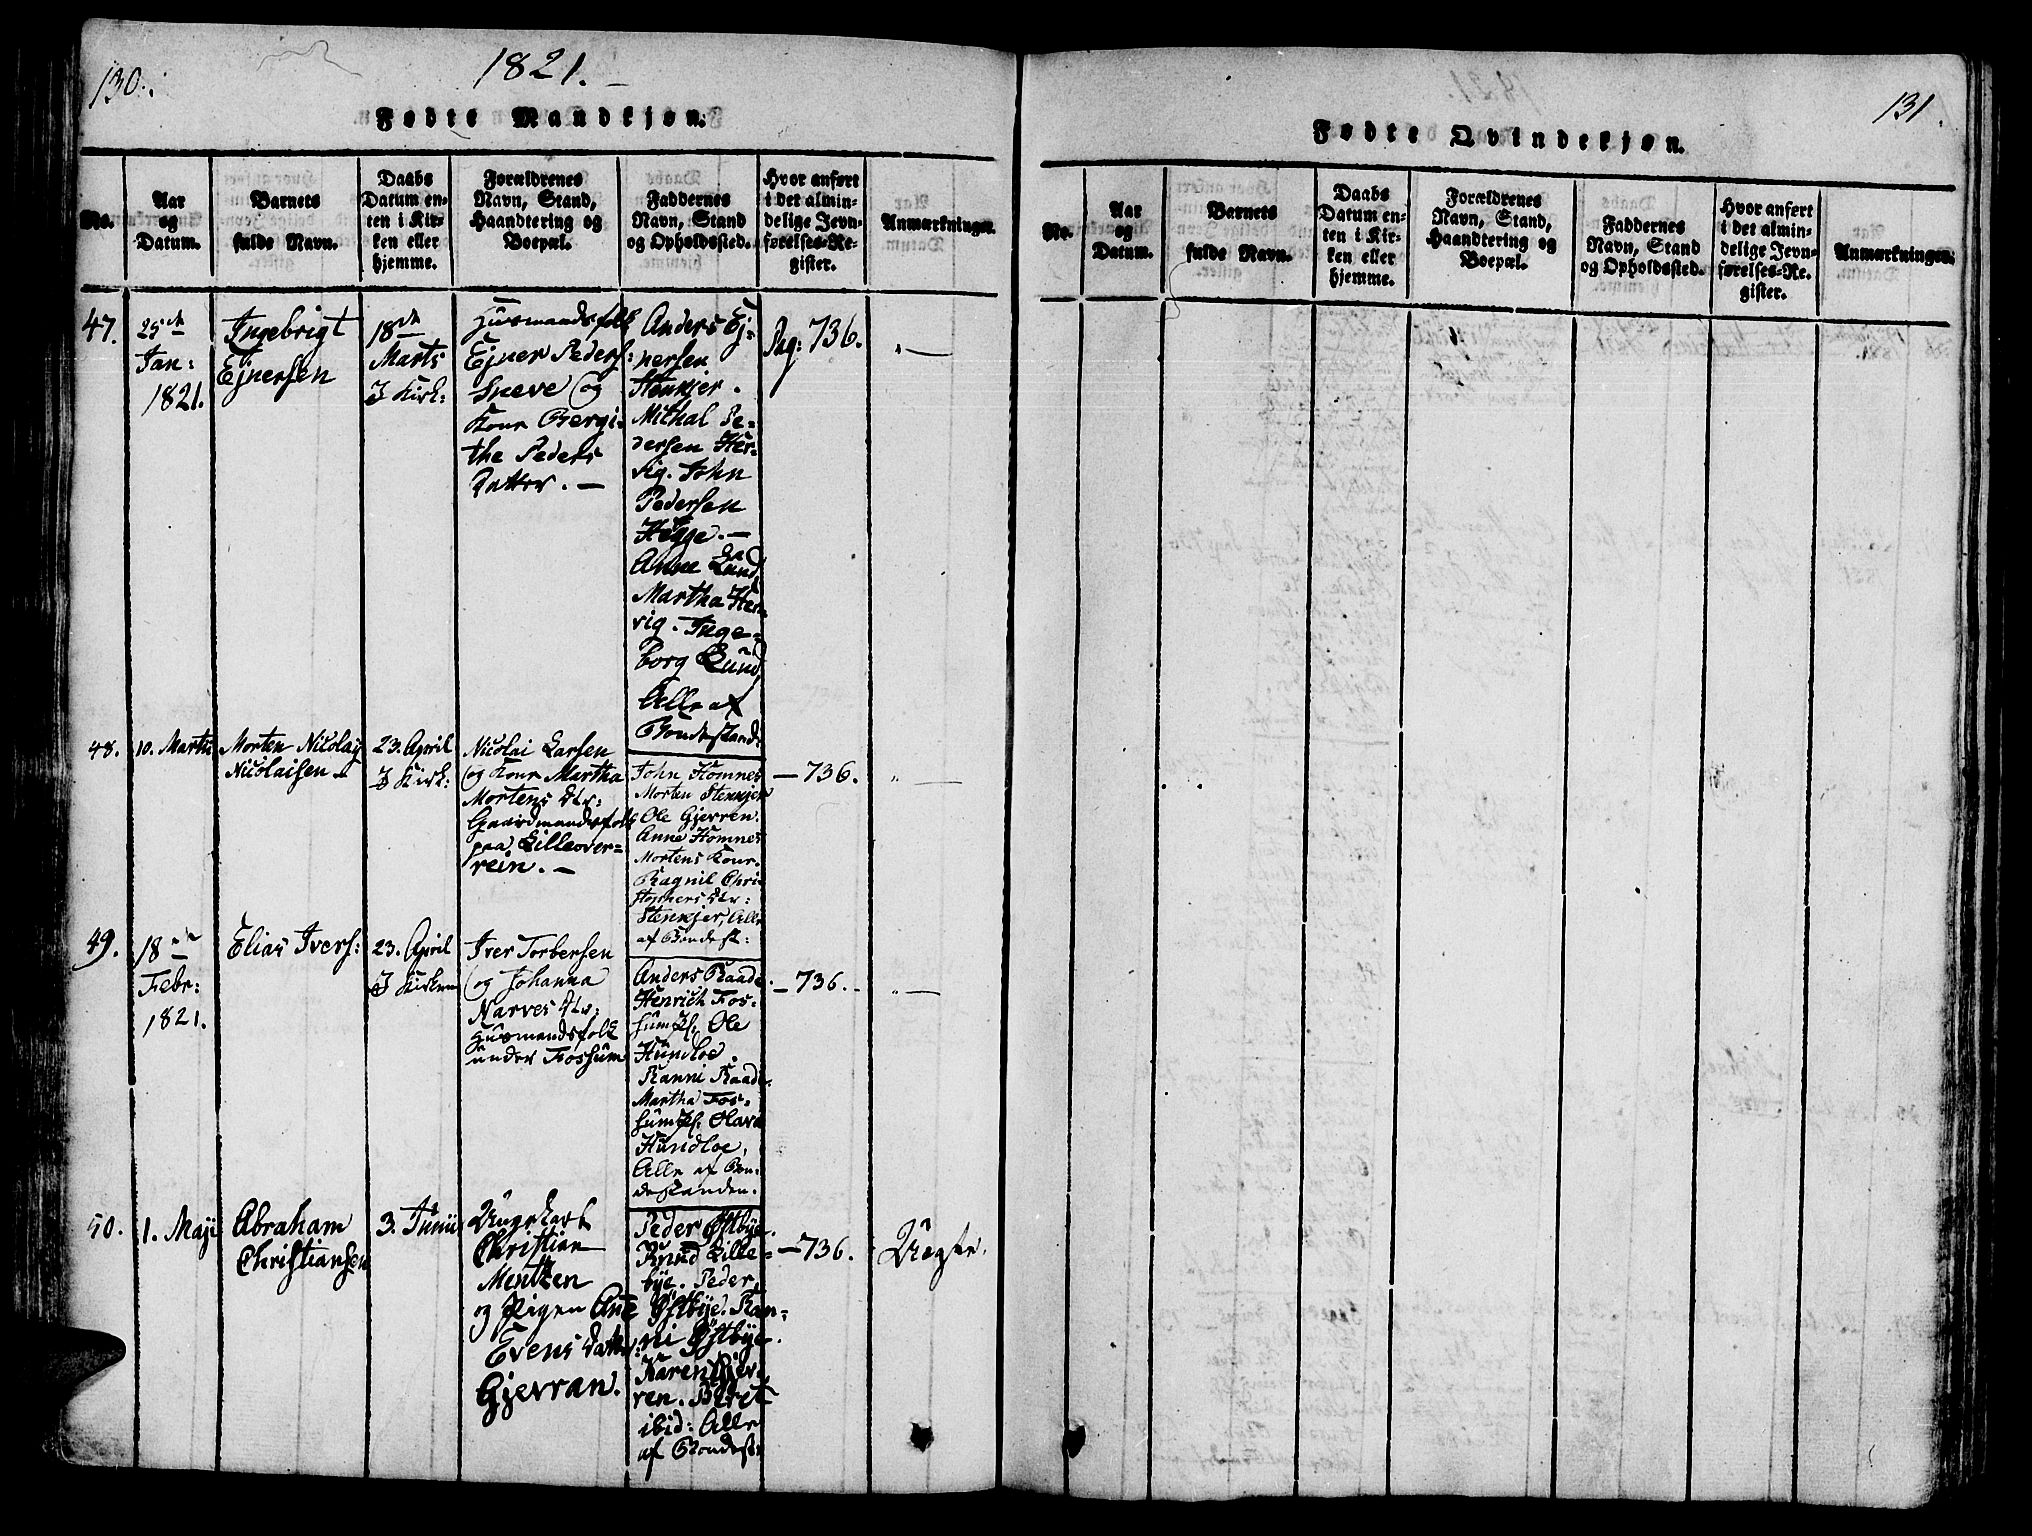 130.
1821.
Fødte Mandkjøn.
No.
Aar
og
Datum.
Barnets
fulde Navn.
Daabs
Datum en-
ten i Kir-
ken eller
hjemme.
Forældrenes
Navn, Stand,
Haandtering og
Boepæl.
Faddernes
Navn, Stand
og Opholdssted.
Hvor anført
i det almin-
delige Jevn-
førelses-Re-
gister.
Anmærkninger.
47.
25de
Jan:
1821.
Ingebrigt
Ejnersen
18de
Marts
I Kirk:
Huusmandsfolk
Ejner Peders:
Sneve og
Kone Bergi-
the Peders
Datter. —
Anders Ej-
nersen
Stenkjer.
Mikal Pe-
dersen Her-
vig. John
Pedersen
Hegge. —
Anne Lund,
Martha Her-
vig. Inge-
borg Lund
Alle af
Bondestand.
Pag: 736.
" —
48.
10. Martii
Morten Nicolay
Nicolaisen —
23. April
I Kirk:
Nicolai Larsen
og Kone Martha
Mortens Dtr:
Gaardmandsfolk
paa Lilleover-
rein. —
John Homnes
Morten Stenkjer
Ole Gjerren.
Anne Homnes
Mortens Kone.
Ragnil Chri-
stophers Dtr:
Stenkjer, Alle
af Bondest:
— 736.
" —
49.
18de
Febr:
1821.
Elias Ivers:
23. April
I Kirken
Iver Torbersen
og Johanna
Narves Dtr:
Huusmandsfolk
under Fossum
Anders Raade.
Henrich Fos-
sumpl. Ole
Hundloe.
Ranni Raade-
Martha Fos-
sumpl. Olava
Hundloe,
Alle af Bon-
destanden.
— 736. -
" —
50.
1. Maji
Abraham
Christiansen
3. Junii
Ungekarl
Christian
Mentzen
og Pigen Ane
Evens Datter:
Gjerran.
Peder Østbye.
Knud Lille-
bye. Peder
Østbye. Ran-
ni Østbye.
Karen Gjer-
ren. Beret
ibid: Alle
af Bondest:
— 736.
Uægte.
131.
Fødte Qvindekjøn.
No.
Aar
og
Datum.
Barnets
fulde Navn.
Daabs
Datum en-
ten i Kir-
ken eller
hjemme.
Forældrenes
Navn, Stand,
Haandtering og
Boepæl.
Faddernes
Navn, Stand
og Opholdssted.
Hvor anført
i det almin-
delige Jevn-
førelses-Re-
gister.
Anmærkninger.